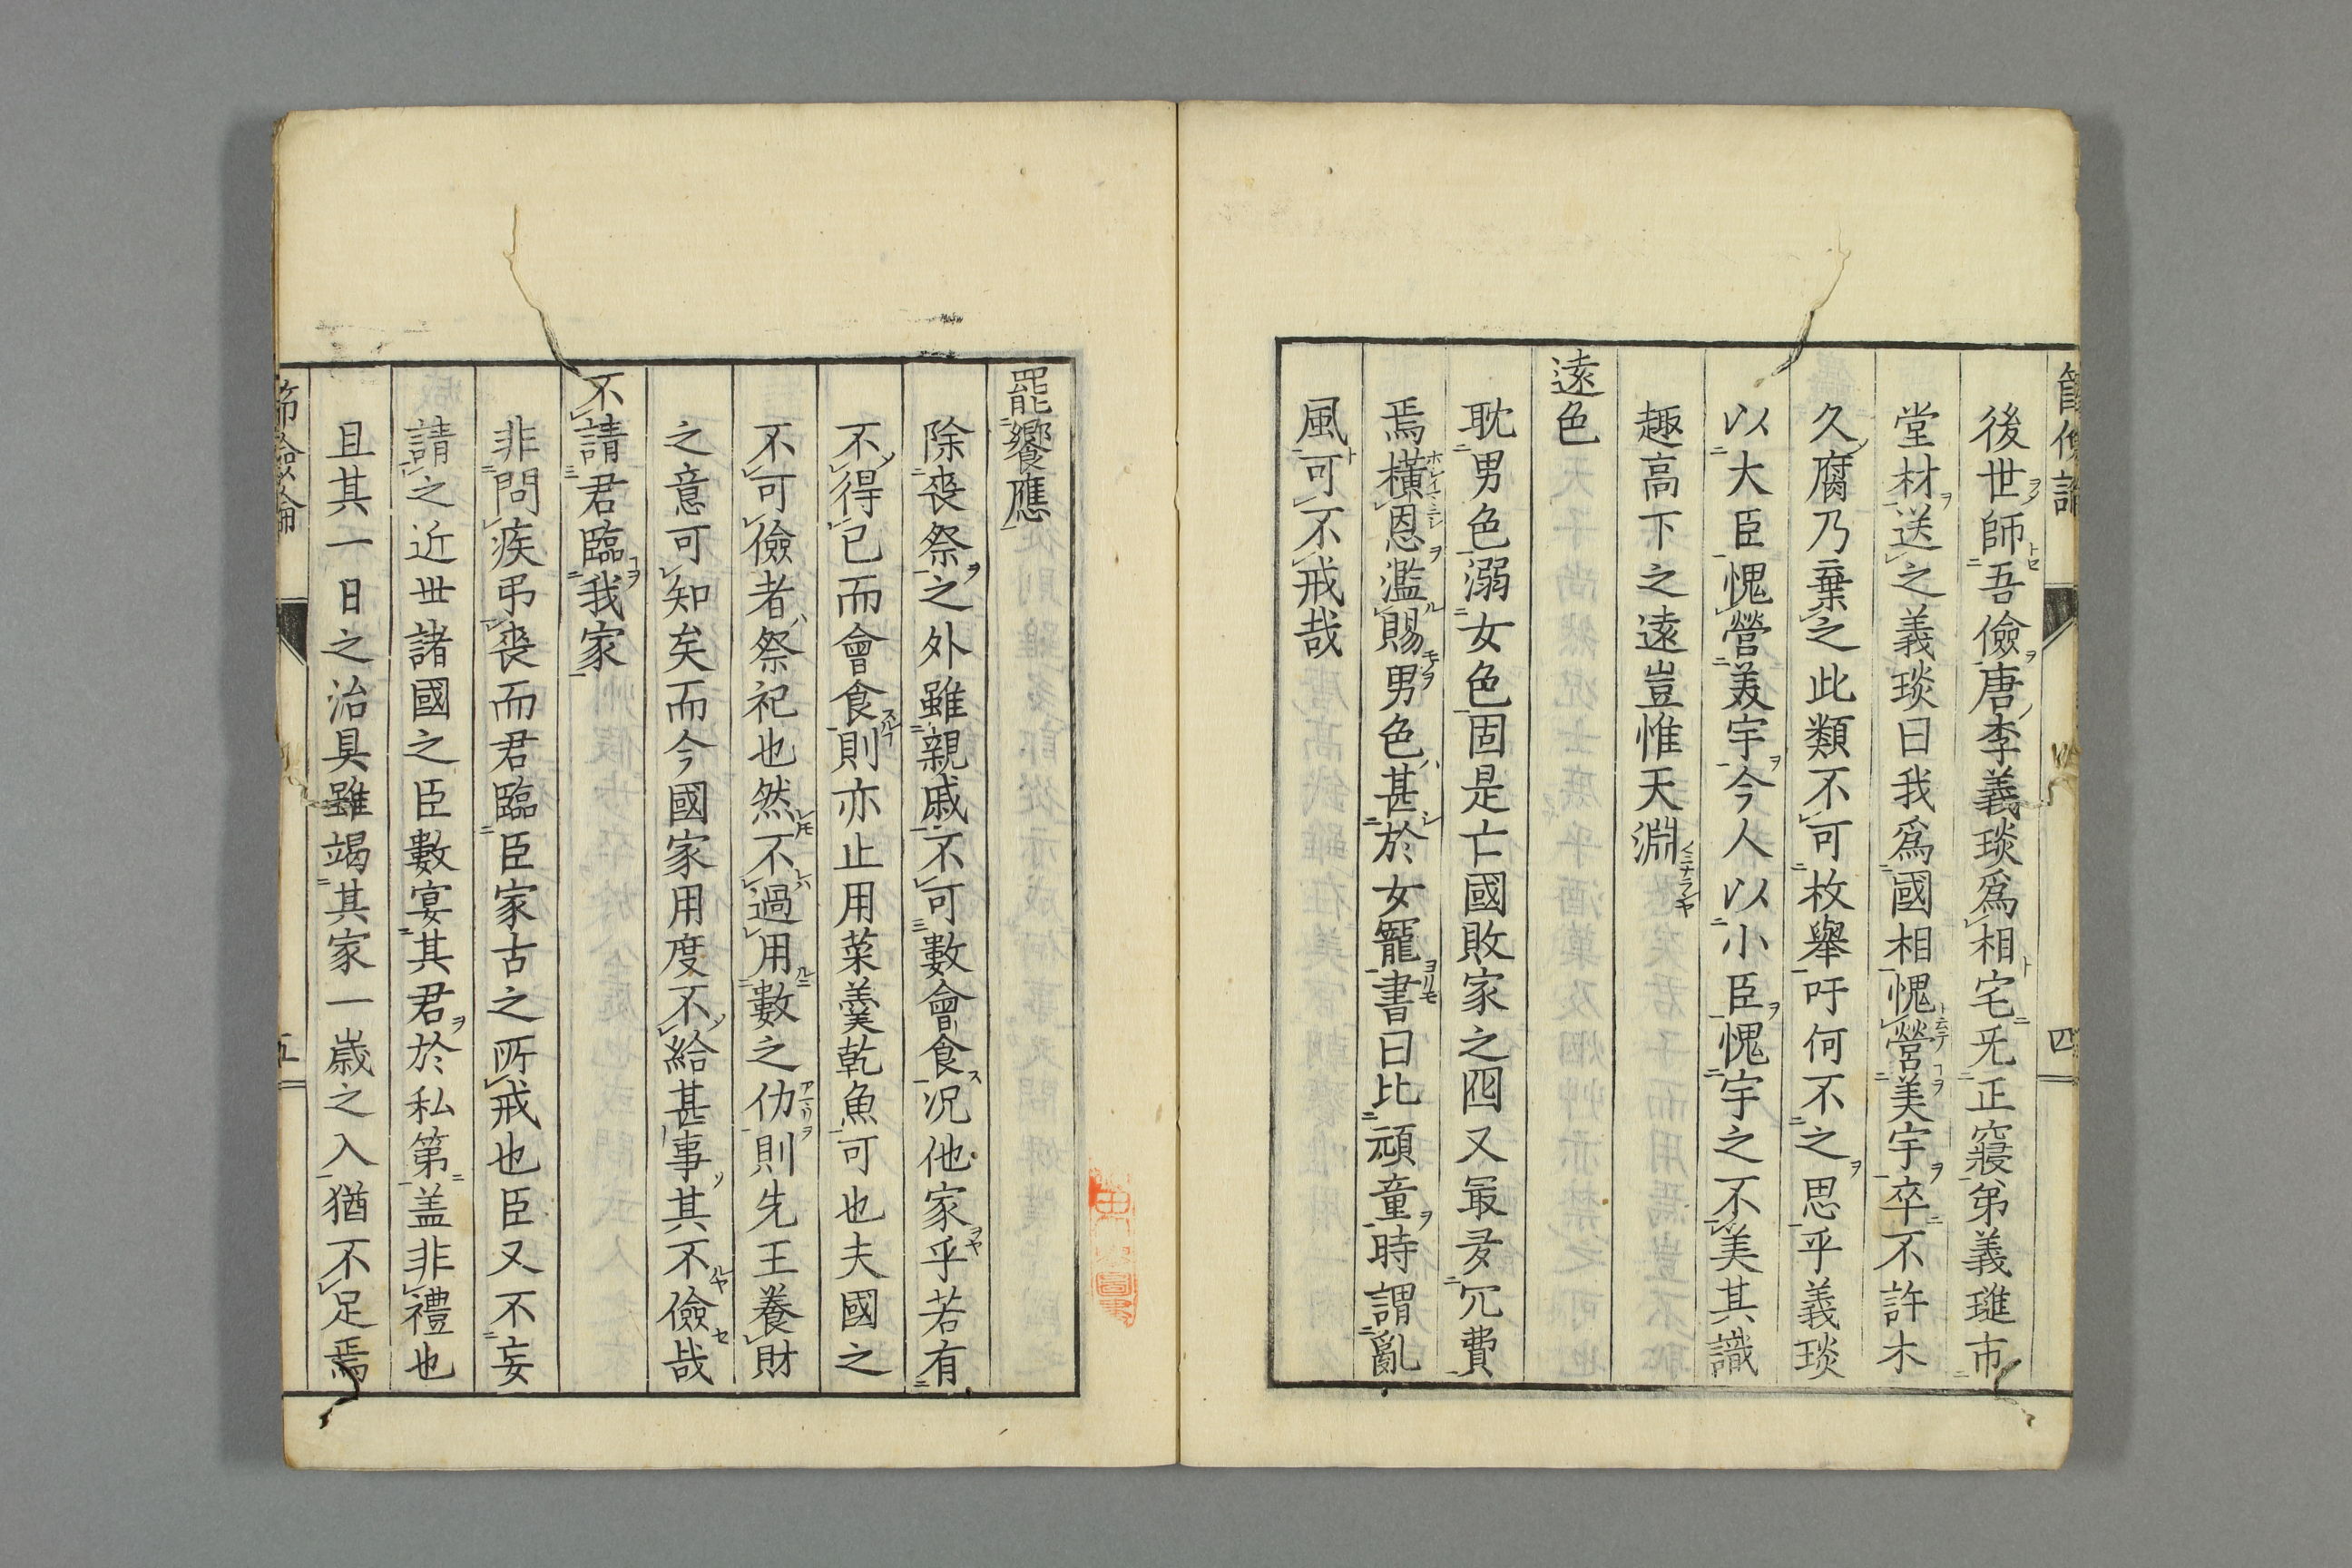 後世師吾儉唐李義琰爲相宅旡正寢弟義璡市
堂材送之義琰曰我爲國相愧營美宇卒不許木
久腐乃棄之此類不可枚舉吁何不之思乎義琰
以大臣愧營美宇今人以小臣愧宇之不美其識
趣高下之遠豈惟天淵
遠色
耽男色溺女色固是亡國敗家之囮又最多冗費
焉橫恩濫賜男色甚於女寵書曰比頑童時謂亂
風可不戒哉
四
罷饗應
除喪祭之外雖親戚不可數會食况他家乎若有
不得已而會食則亦止用菜羹乾魚可也夫國之
不可儉者祭祀也然不過用數之仂則先王養財
之意可知矣而今國家用度不給甚事其不儉哉
不請君臨我家
非問疾弔喪而君臨臣家古之所戒也臣又不妄
請之近世諸國之臣數宴其君於私第盖非禮也
且其一日之治具雖竭其家一歲之入猶不足焉
節儉論
五